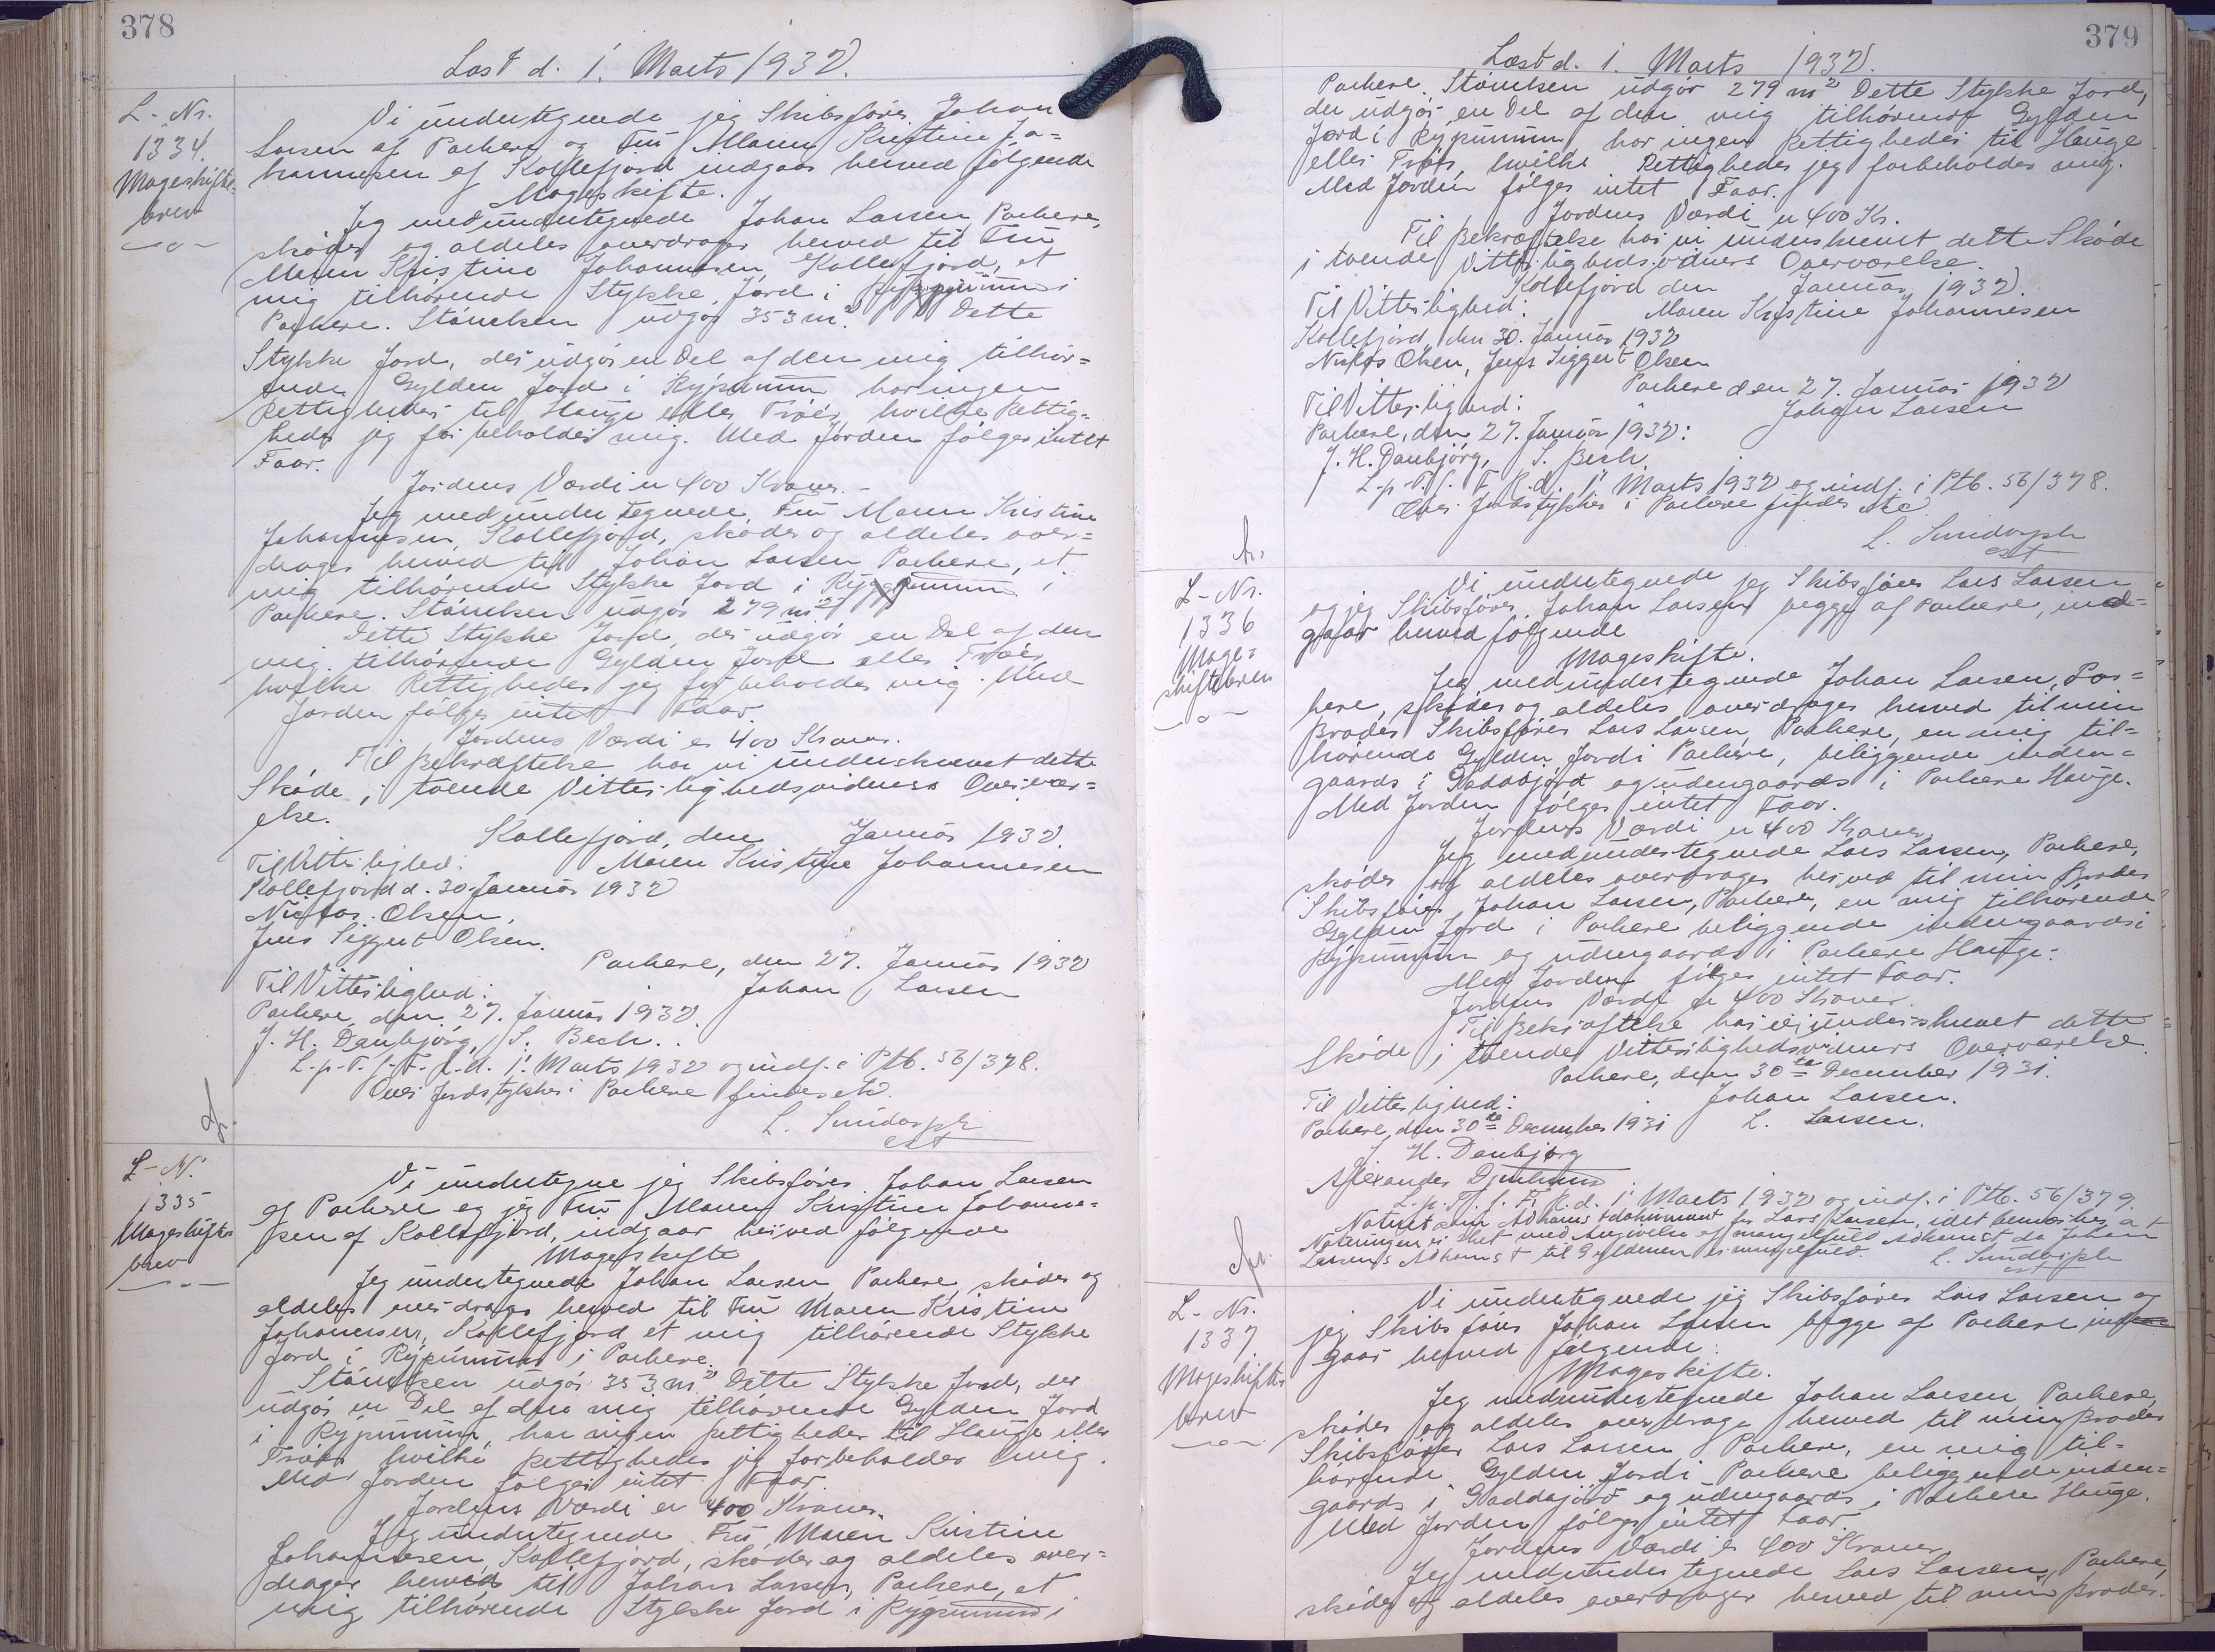 378
Læst d. 1. Marts 1932.
L-Nr.
1334.
Mageskifte-
brev
Vi undertegnede jeg Skibsfører Johan
Larsen af Porkere og Fru Maren Kristine Jo=
hannesen af Kollefjord indgaar herved følgende
Mageskifte.
Jeg medundertegnede Johan Larsen, Porkere,
skøder og aldeles overdrager herved til Fru
Maren Kristine Johannesen, Kollefjord, et
mig tilhørende Stykke Jord i i
Porkere. Størrelsen udgør 353 m². Dette
Stykke Jord, der udgør en Del af den mig tilhør=
ende Gylden Jord i Rýpumum har ingen
Rettigheder til Hauge eller Trøer, hvilke Rettig=
heder jeg forbeholder mig. Med Jorden følger intet
Faar.
Jordens Værdi er 400 Kroner. -
Jeg medundertegnede Fru Maren Kristine
Johannesen, Kollefjord, skøder og aldeles over=
drager herved til Johan Larsen Porkere, et
mig tilhørende Stykke Jord i i
Porkere. Størrelsen udgør 279 m²
Dette Stykke Jord, der udgør en Del af den
mig tilhørende Gylden Jord eller Trøer,
hvilke Rettigheder jeg forbeholder mig. Med
Jorden følger intet Faar.
Jordens Værdi er 400 Kroner.
Til Bekræftelse har vi underskrevet dette
Skøde i tvende Vitterlighedsvidners Overvær=
else.
Kollefjord, den Januar 1932.
Til Vitterlighed: Maren Kristine Johannesen
Kollefjord d. 30. Januar 1932
Olsen,
Jens Siggert Olsen.
Porkere, den 27. Januar 1932
Til Vitterlighed: Johan Larsen
Porkere, den 27. Januar 1932.
J. H. Danbjørg, S. Bech.
L. p. T. f. F. R. d. 1' Marts 1932 og indf. i Ptb. 56/378.
Over Jordstykker i Porkere findes etc.
L. Sundorph
cst
L-Nr.
1335
Mageskifte-
brev
Vi undertegne jeg Skibsfører Johan Larsen
af Porkere og jeg Fru Maren Kristine Johanne=
sen af Kollefjord, indgaar herved følgende
Mageskifte
Jeg undertegnede Johan Larsen Porkere, skøder og
aldeles overdrager herved til Fru Maren Kristine
Johannesen, Kollefjord et mig tilhørende Stykke
Jord i Rýpumum i Porkere.
Størrelsen udgør 353 m² Dette Stykke Jord, der
udgør en Del af den mig tilhørende Gylden Jord
i Rýpumum, har ingen Rettigheder til Hauge eller
Trøer, hvilke Rettigheder jeg forbeholder mig.
Med Jorden følger intet Faar.
Jordens Værdi er 400 Kroner.
Jeg undertegnede Fru Maren Kristine
Johannesen, Kollefjord, skøder og aldeles over=
drager herved til Johan Larsen, Porkere, et
mig tilhørende Stykke Jord i Rýpumum i
379
Læst d. 1. Marts 1932.
Porkere. Størrelsen udgør 279 m² Dette Stykke Jord,
der udgør en Del af den mig tilhørende Gylden
Jord i Rýpumum har ingen Rettigheder til Hauge
eller Trøer, hvilke Rettigheder jeg forbeholder mig.
Med Jorden følger intet Faar.
Jordens Værdi er 400 Kr.
Til Bekræftelse har vi underskrevet dette Skøde
i tvende Vitterlighedsvidners Overværelse.
Kollefjord den Januar 1932.
Til Vitterlighed: Maren Kristine Johannesen
Kollefjord, den 30. Januar 1932
Olsen, Jens Siggert Olsen
Porkere den 27. Januar 1932
Til Vitterlighed: Johan Larsen
Porkere, den 27. Januar 1932:
J. H. Danbjørg, S. Bech.
L. p. T. f. F. R. d. 1' Marts 1932 og indf. i Ptb. 56/378.
Over Jordstykker i Porkere findes etc
L. Sundorph
cst
L-Nr.
1336
Mage=
skiftebrev
Vi undertegnede jeg Skibsfører Lars Larsen
og jeg Skibsfører Johan Larsen begge af Porkere, ind=
gaar herved følgende
Mageskifte.
Jeg medundertegnede Johan Larsen, Por=
kere, skøder og aldeles overdrager herved til min
Broder Skibsfører Lars Larsen, Porkere, en mig til=
hørende Gylden Jord i Porkere, beliggende inden=
gaards i Gaddajørd og udengaards i Porkere Hauge.
Med Jorden følger intet Faar.
Jordens Værdi er 400 Kroner
Jeg medundertegnede Lars Larsen, Porkere,
skøder og aldeles overdrager herved til min Broder
Skibsfører Johan Larsen, Porkere, en mig tilhørende
Gylden Jord i Porkere beliggende indengaards i
Rýpumum og udengaards i Porkere Hauge.
Med Jorden følger intet Faar.
Jordens Værdi er 400 Kroner.
Til Bekræftelse har vi underskrevet dette
Skøde i tvende Vitterlighedsvidners Overværelse.
Porkere, den 30te December 1931.
Til Vitterlighed: Johan Larsen.
Porkere, den 30te December 1931 L. Larsen.
J. H. Danbjørg
Alexander Djurhuus
L. p. T. f. F. R. d. 1' Marts 1932 og indf. i Ptb. 56/379.
Noteret som Adkomstdokument for Lars Larsen, idet bemærkes, at
Noteringen er sket med Angivelse af mangelfuld Adkomst, da Johan
Larsens Adkomst til Gyldenen er mangelfuld.
L. Sundorph
cst
L-Nr.
1337.
Mageskifte-
brev
Vi undertegnede jeg Skibsfører Lars Larsen og
jeg Skibsfører Johan Larsen begge af Porkere ind
gaar herved følgende:
Mageskifte.
Jeg medundertegnede Johan Larsen, Porkere,
skøder og aldeles overdrager herved til min Broder
Skibsfører Lars Larsen Porkere, en mig til=
hørende Gylden Jord i Porkere beliggende inden=
gaards i Gaddajørd og udengaards i Porkere Hauge.
Med Jorden følger intet Faar.
Jordens Værdi er 400 Kroner
Jeg medundertegnede Lars Larsen, Porkere,
skøder og aldeles overdrager herved til min Broder